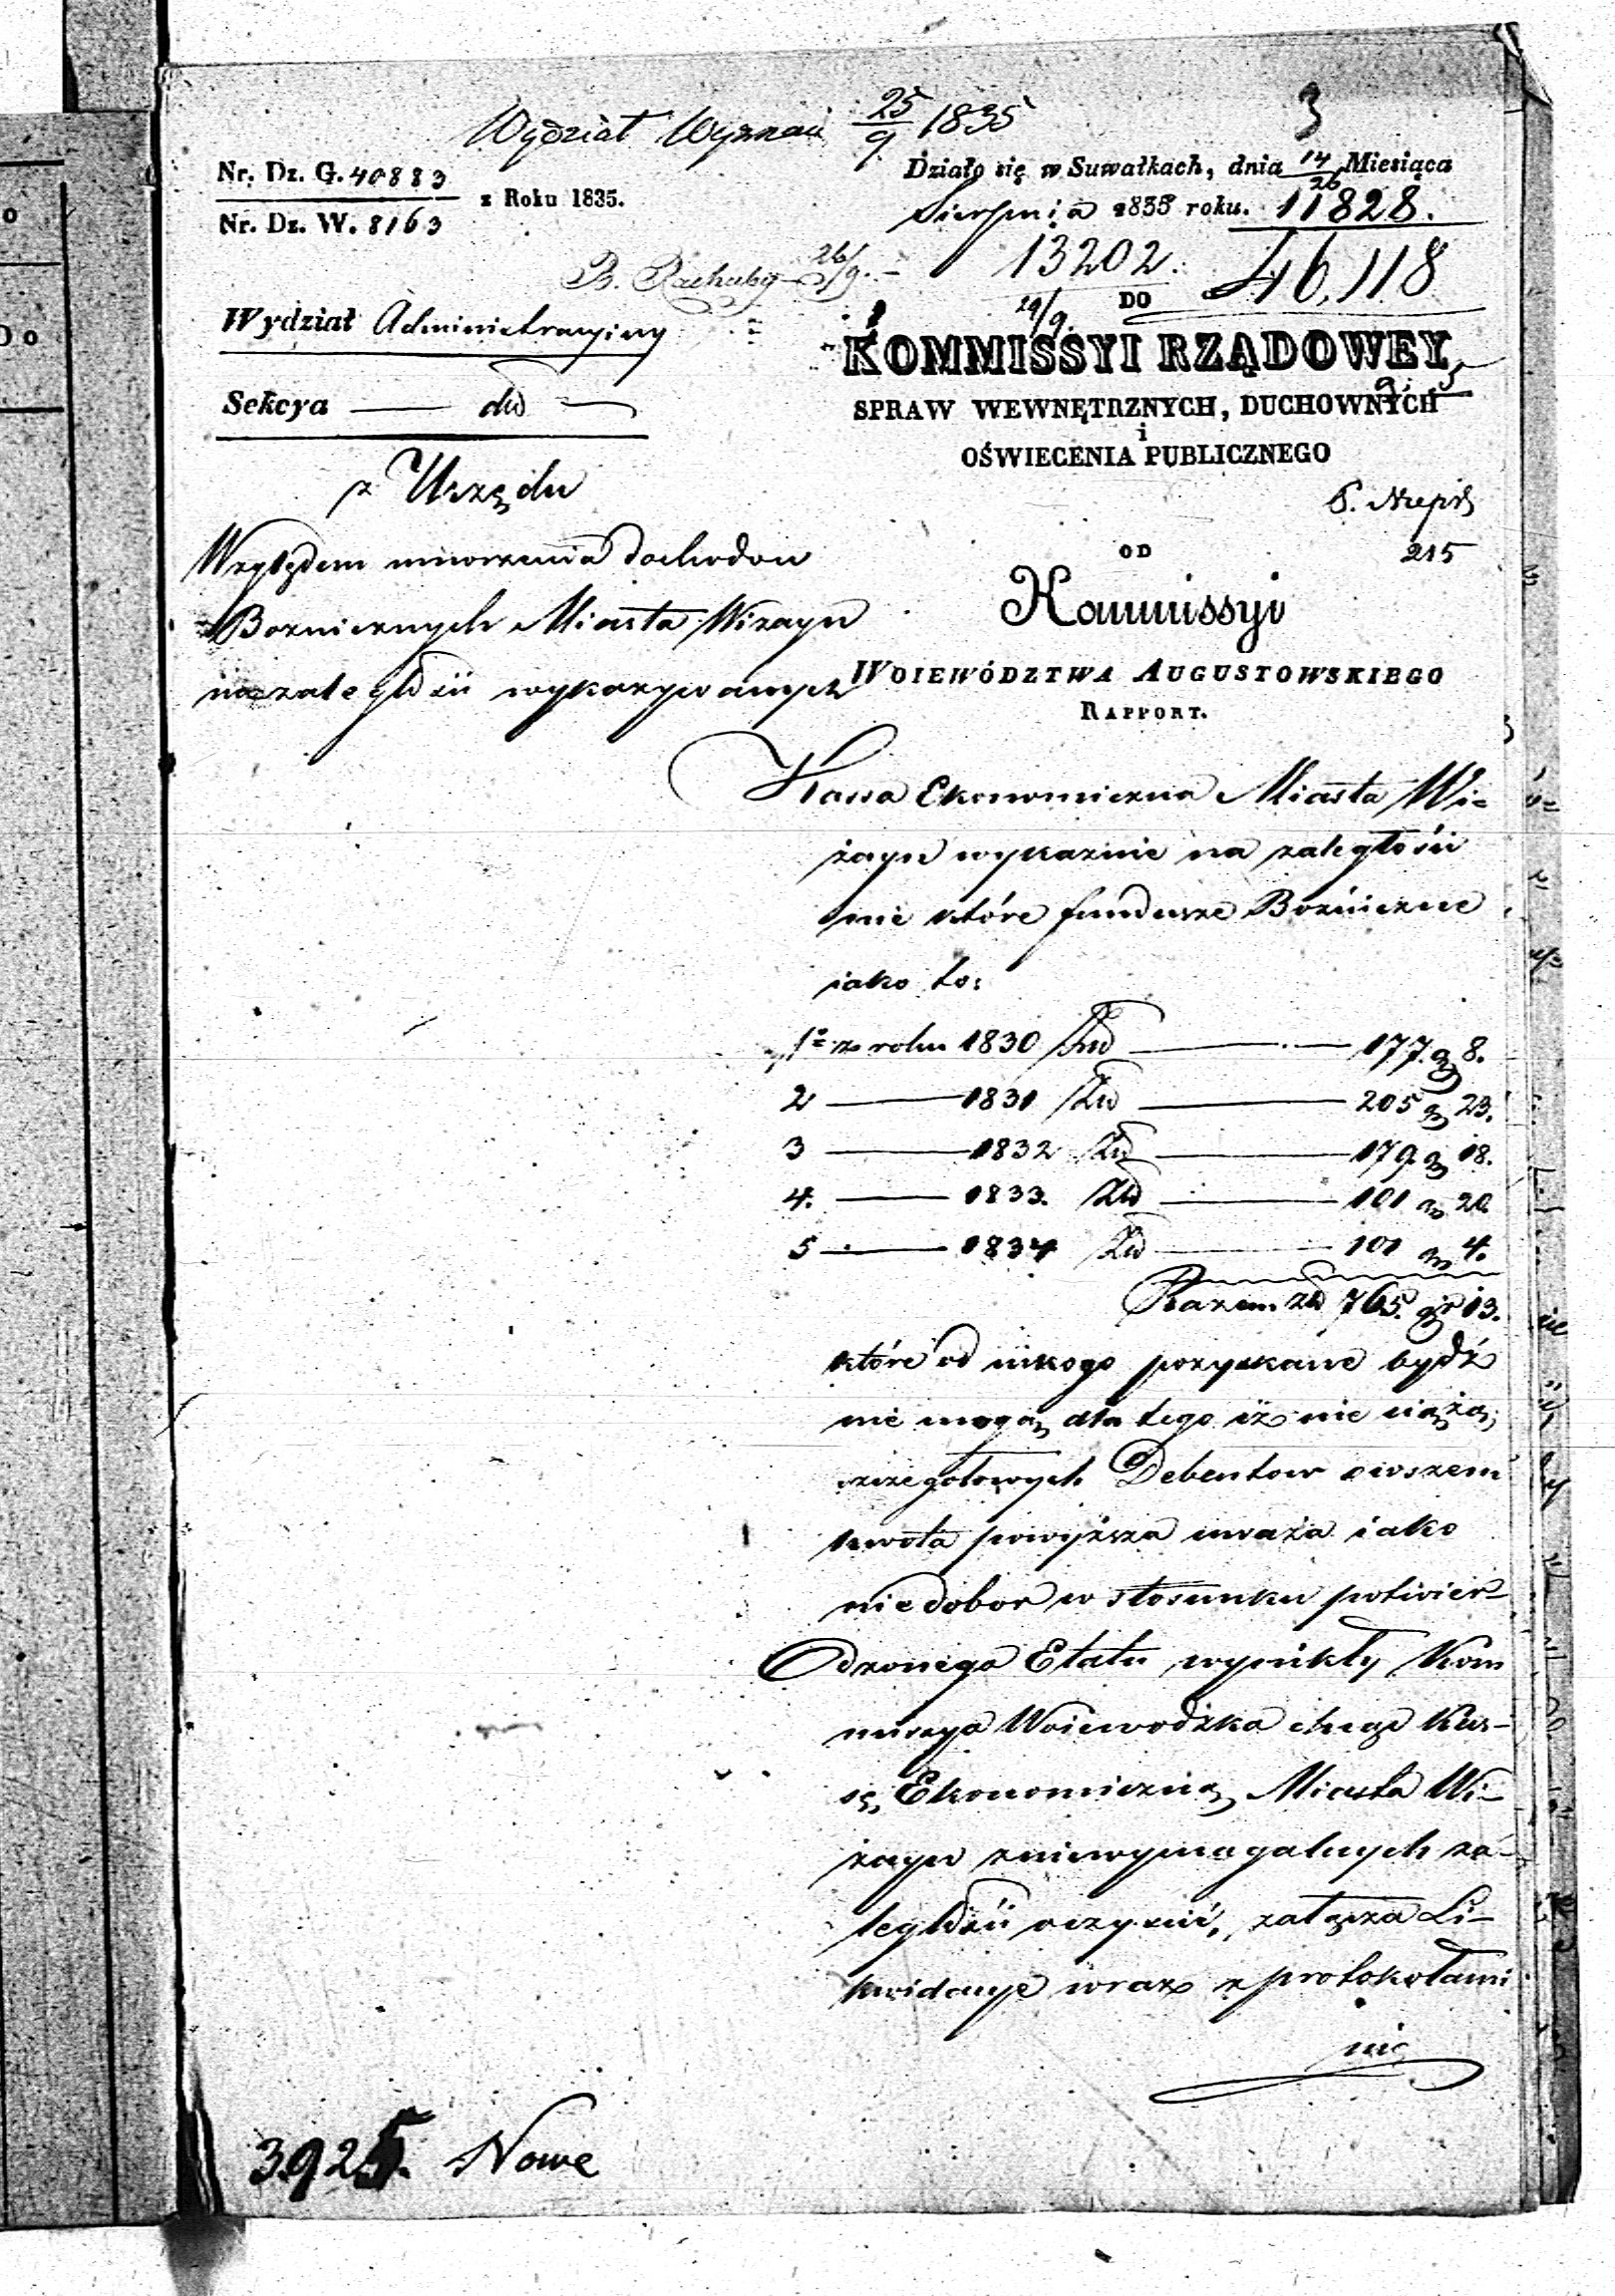 3
Wydział Wyznań 25/9 1835
Nr. Dz. G. 40883
Nr. Dz. W. 8163
z Roku 1835.
Działo się w Suwałkach, dnia 14/26 Miesiąca
Sierpnia 1835 roku. 11828.
13202.
46,118
B. Rachuby 26/9.
19/9.
DO
Wydział Administracyiny
KOMMISSYI RZĄDOWEY
Sekcya
SPRAW WEWNĘTRZNYCH, DUCHOWNYCH
i
OŚWIECENIA PUBLICZNEGO
z Urzędu
215
OD
Względem umorzenia dochodow
Boznicznych Miasta Wizayn
na zaległości wykazywanych
Kommissyi
WOIEWÓDZTWA AUGUSTOWSKIEGO
RAPPORT.
Kassa Ekonomiczna Miasta Wi=
żayn wykazuie na zaległości
nie które fundusze Bożniczne
iako to:
1º z roku 1830 Złł 177. gr 8.
2 1831 Złł 205 gr 23.
3 1832 Złł 179 gr 18.
4. 1833. Złł 101 gr 20
5 1834 Złł 101 gr 4.
Razem złł 765. gr 13.
które od nikogo pozyskane bydź
nie mogą, dla tego iż nie ciążą,
szczegołowych Debentow owszem
kwota powyższa uważa iako
niedobor w stosunku potwier-
dzonego Etatu wynikły Kom
missya Woiewodzka chcąc Kas-
sę Ekonomiczną Miasta Wi-
żayn z niewymagalnych za-
ległości oczyścić, załącza Li-
kwidacye wraz z protokołami
nie
3925. Nowe